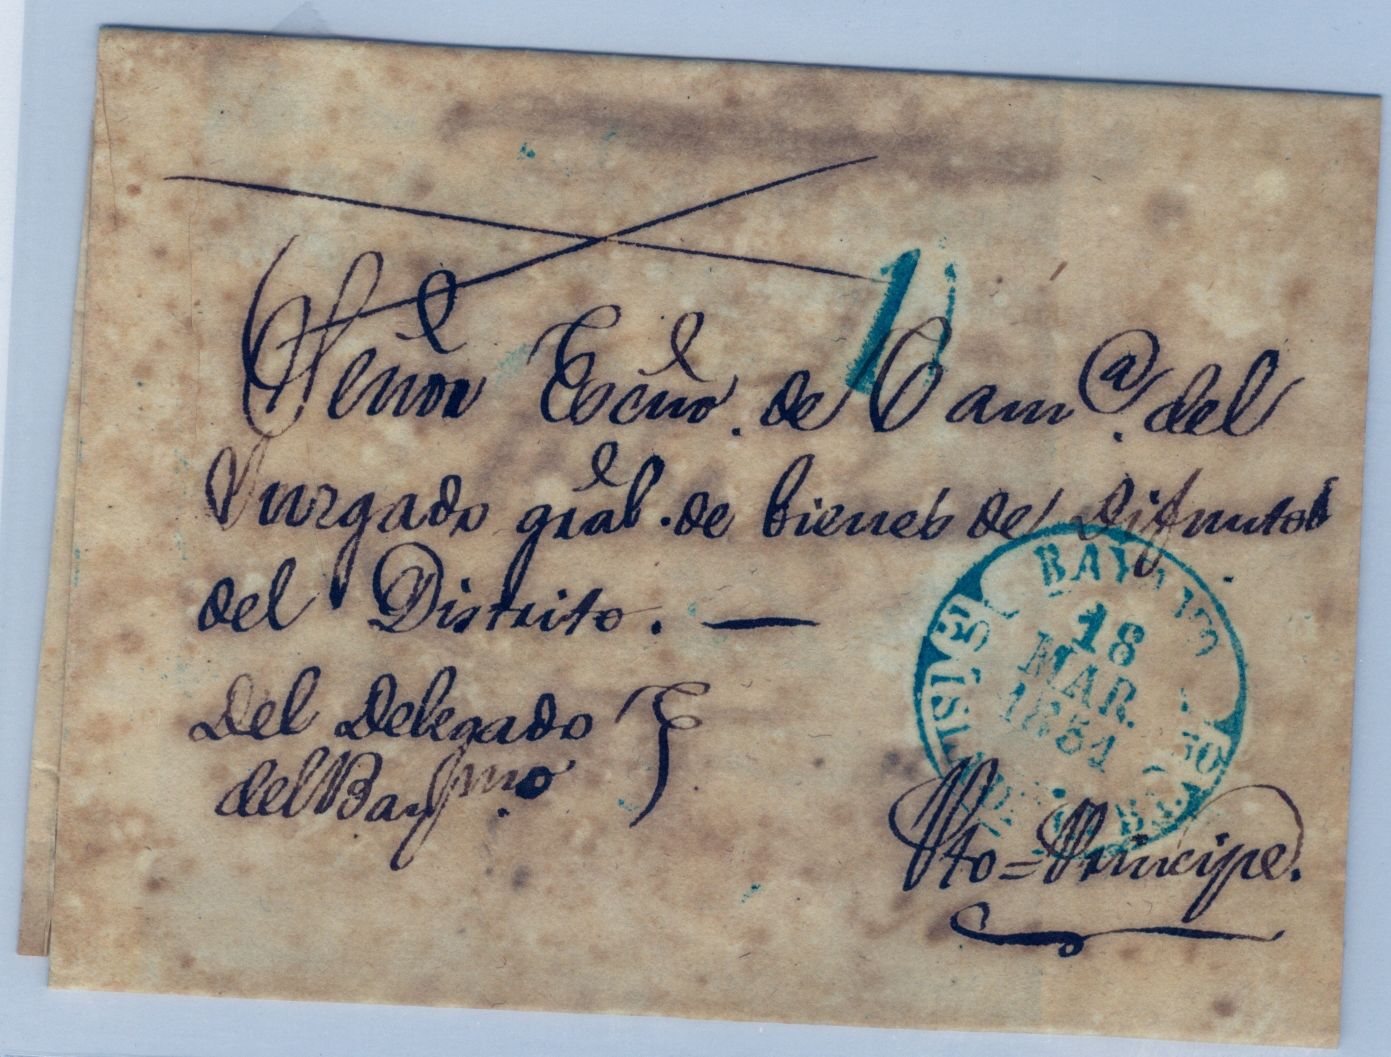 Señor Escño. de Cam@. del
Jurgado gral. de bienes de Difuntos
del Distrito. —
Del Delegado
del Bayamo
BAYAMO
18
MAR.
1851
ISLA DE CUBA
Pto=Principe.